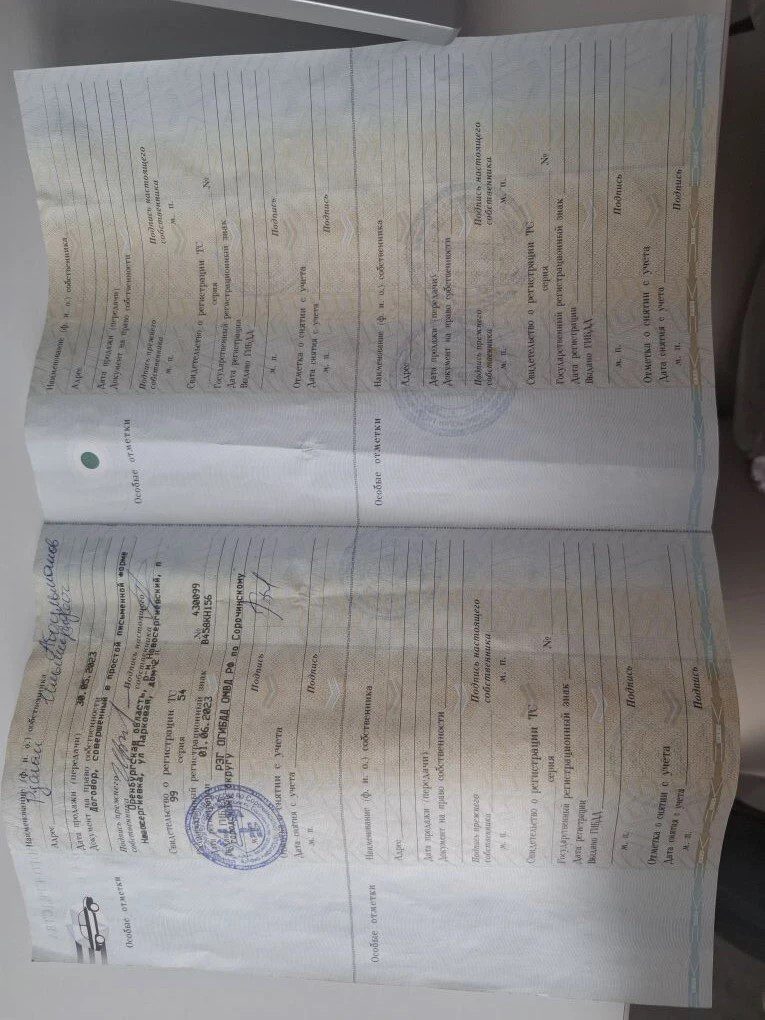 Особые отметки
Наименование (ф. и. о.) собственника
Адрес
Дата продажи (передачи) 30.05.2023
Документ на право собственности
Договор, совершенный в простой письменной форме
Подпись прежнего собственника
Подпись настоящего собственника
Оренбургская область, р-н Новосергиевский, п
Новосергиевка, ул Парковая, дом
Свидетельство о регистрации ТС
99 серия 54 № 430099
Государственный регистрационный знак В458КН156
Дата регистрации 01.06.2023
Выдано ГИБДД РЭГ ОГИБДД ОМВД РФ по Сорочинскому
городскому округу
Подпись
Отметка о снятии с учета
Дата снятия с учета
м. п.
Подпись
Особые отметки
Наименование (ф. и. о.) собственника
Адрес
Дата продажи (передачи)
Документ на право собственности
Подпись прежнего собственника
Подпись настоящего собственника
м. п.
м. п.
Свидетельство о регистрации ТС
серия №
Государственный регистрационный знак
Дата регистрации
Выдано ГИБДД
м. п.
Подпись
Отметка о снятии с учета
Дата снятия с учета
м. п.
Подпись
Особые отметки
Наименование (ф. и. о.) собственника
Адрес
Дата продажи (передачи)
Документ на право собственности
Подпись прежнего собственника
Подпись настоящего собственника
м. п.
м. п.
Свидетельство о регистрации ТС
серия №
Государственный регистрационный знак
Дата регистрации
Выдано ГИБДД
м. п.
Подпись
Отметка о снятии с учета
Дата снятия с учета
м. п.
Подпись
Особые отметки
Наименование (ф. и. о.) собственника
Адрес
Дата продажи (передачи)
Документ на право собственности
Подпись прежнего собственника
Подпись настоящего собственника
м. п.
м. п.
Свидетельство о регистрации ТС
серия №
Государственный регистрационный знак
Дата регистрации
Выдано ГИБДД
м. п.
Подпись
Отметка о снятии с учета
Дата снятия с учета
м. п.
Подпись